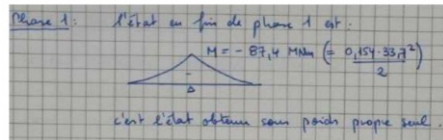 Phase 1 : l'état en fin de phase 1 est :
M = - 87,4 MNm (= 0,154 · 33,7² / 2)
-
Δ
c'est l'état obtenu sous poids propre seul.